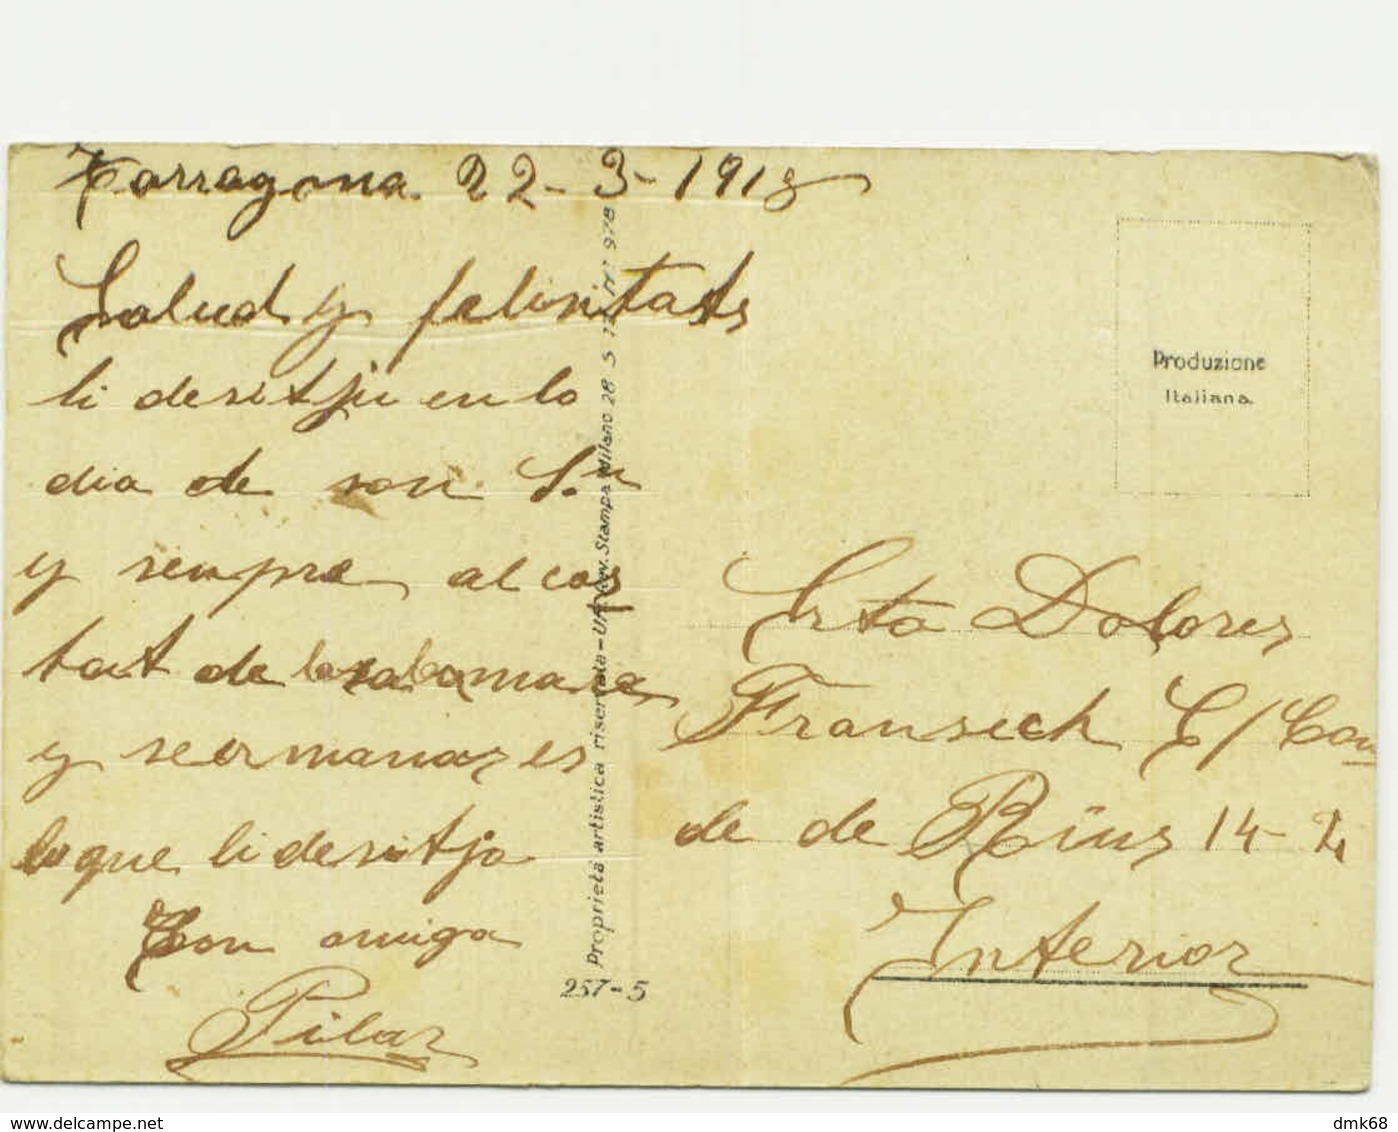 Tarragona 22-3-1918
Salud y felisitats
li desitju en lo
dia de son S.n
y sempre al cos
tat de mara
y germanas es
lo que li desitja
Con amiga
Pilar
Proprietà artistica riservata - Uff. Rev. Stampa Milano 28 5 17 N° 978
257-5
Produzione
Italiana.
Srta Dolores
Fransech C/ Con
de de Rius 14-2
Interior
www.delcampe.net
dmk68